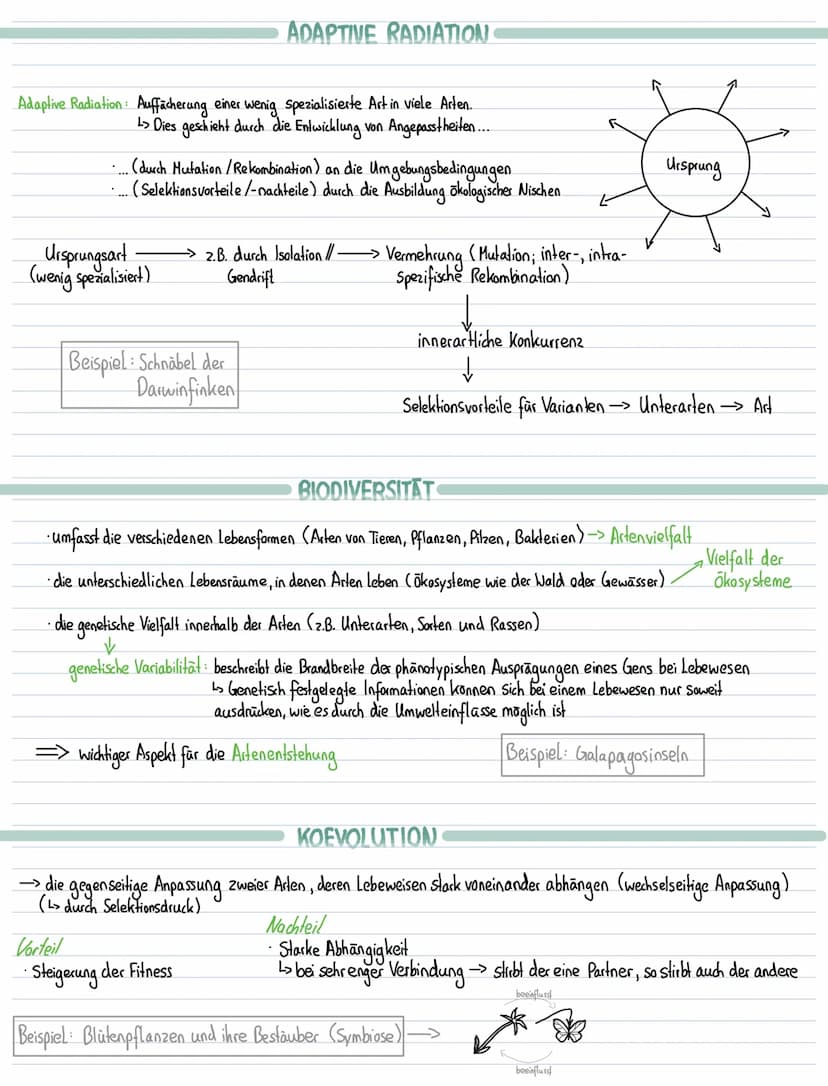 ADAPTIVE RADIATION
Adaptive Radiation: Auffächerung einer wenig spezialisierte Art in viele Arten.
↳ Dies geschieht durch die Entwicklung von Angepasstheiten...
· ... (durch Mutation/Rekombination) an die Umgebungsbedingungen
· ... (Selektionsvorteile/-nachteile) durch die Ausbildung ökologischer Nischen
Ursprung
Ursprungsart → z.B. durch Isolation // → Vermehrung (Mutation; inter-, intra-
(wenig spezialisiert) Gendrift spezifische Rekombination)
↓
innerartliche Konkurrenz
↓
Beispiel: Schnäbel der
Darwinfinken
Selektionsvorteile für Varianten → Unterarten → Art
BIODIVERSITÄT
· umfasst die verschiedenen Lebensformen (Arten von Tieren, Pflanzen, Pilzen, Bakterien) → Artenvielfalt
· die unterschiedlichen Lebensräume, in denen Arten leben (Ökosysteme wie der Wald oder Gewässer) ↗ Vielfalt der
Ökosysteme
· die genetische Vielfalt innerhalb der Arten (z.B. Unterarten, Sorten und Rassen)
↓
genetische Variabilität: beschreibt die Brandbreite der phänotypischen Ausprägungen eines Gens bei Lebewesen
↳ Genetisch festgelegte Informationen können sich bei einem Lebewesen nur soweit
ausdrücken, wie es durch die Umwelteinflüsse möglich ist
⇒ wichtiger Aspekt für die Artenentstehung
Beispiel: Galapagosinseln
KOEVOLUTION
→ die gegenseitige Anpassung zweier Arten, deren Lebeweisen stark voneinander abhängen (wechselseitige Anpassung)
(↳ durch Selektionsdruck)
Vorteil
· Steigerung der Fitness
Nachteil
· Starke Abhängigkeit
↳ bei sehr enger Verbindung → stirbt der eine Partner, so stirbt auch der andere
Beispiel: Blütenpflanzen und ihre Bestäuber (Symbiose) →
beeinflusst
beeinflusst